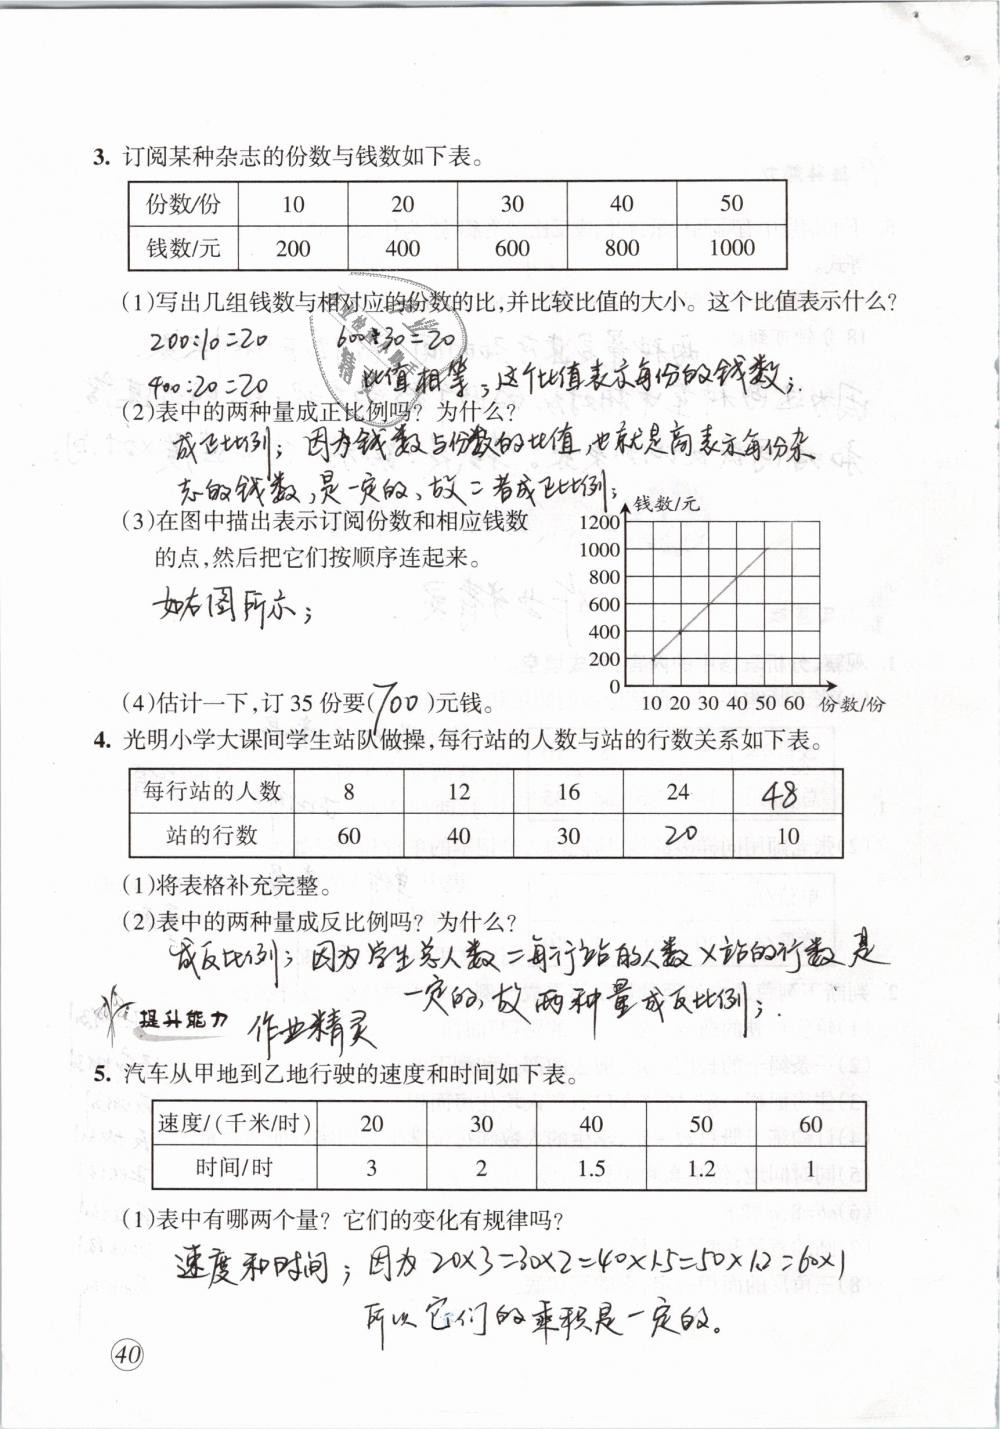 3. 订阅某种杂志的份数与钱数如下表。
份数/份 10 20 30 40 50
钱数/元 200 400 600 800 1000
(1)写出几组钱数与相对应的份数的比,并比较比值的大小。这个比值表示什么?
200:10=20 600:30=20
400:20=20 比值相等;这个比值表示每份的钱数;
(2)表中的两种量成正比例吗? 为什么?
成正比例;因为钱数与份数的比值,也就是
表示每份杂
志的钱数,是一定的,故二者成正比例;
(3)在图中描出表示订阅份数和相应钱数
的点,然后把它们按顺序连起来。
如右图所示;
钱数/元
1200
1000
800
600
400
200
0
10 20 30 40 50 60 份数/份
(4)估计一下,订 35 份要(700)元钱。
4. 光明小学大课间学生站队做操,每行站的人数与站的行数关系如下表。
每行站的人数 8 12 16 24 48
站的行数 60 40 30 20 10
(1)将表格补充完整。
(2)表中的两种量成反比例吗? 为什么?
成反比例;因为学生总人数=每行站的人数×站的行数是
一定的,故两种量成反比例;
提升能力 作业精灵
5. 汽车从甲地到乙地行驶的速度和时间如下表。
速度/(千米/时) 20 30 40 50 60
时间/时 3 2 1.5 1.2 1
(1)表中有哪两个量? 它们的变化有规律吗?
速度和时间;因为20×3=30×2=40×1.5=50×1.2=60×1
所以它们的乘积是一定的。
40